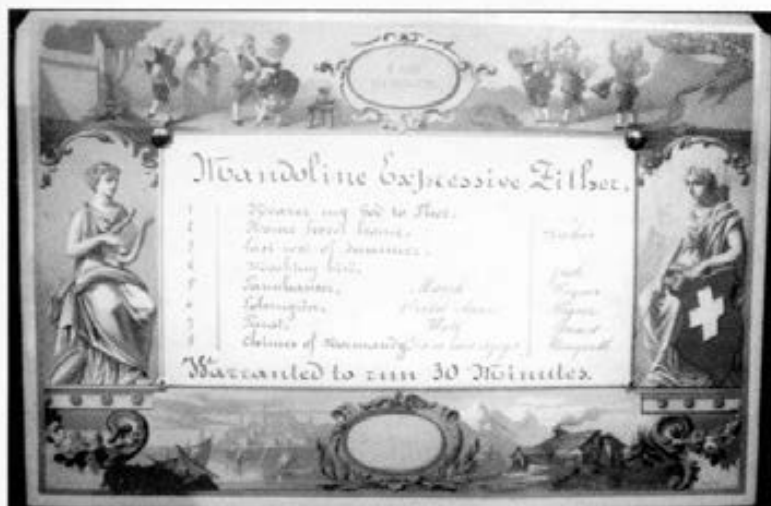 Mandoline Expressive Zither.
1 Nearer my God to Thee.
2 Home sweet home.
3 Last rose of Summer.
4 Mocking bird.
5 Tannhauser. March Wagner
6 Lohengrin. Wagner
7 Faust. Waltz Gounod
8 Chimes of Normandy
Warranted to run 30 Minutes.